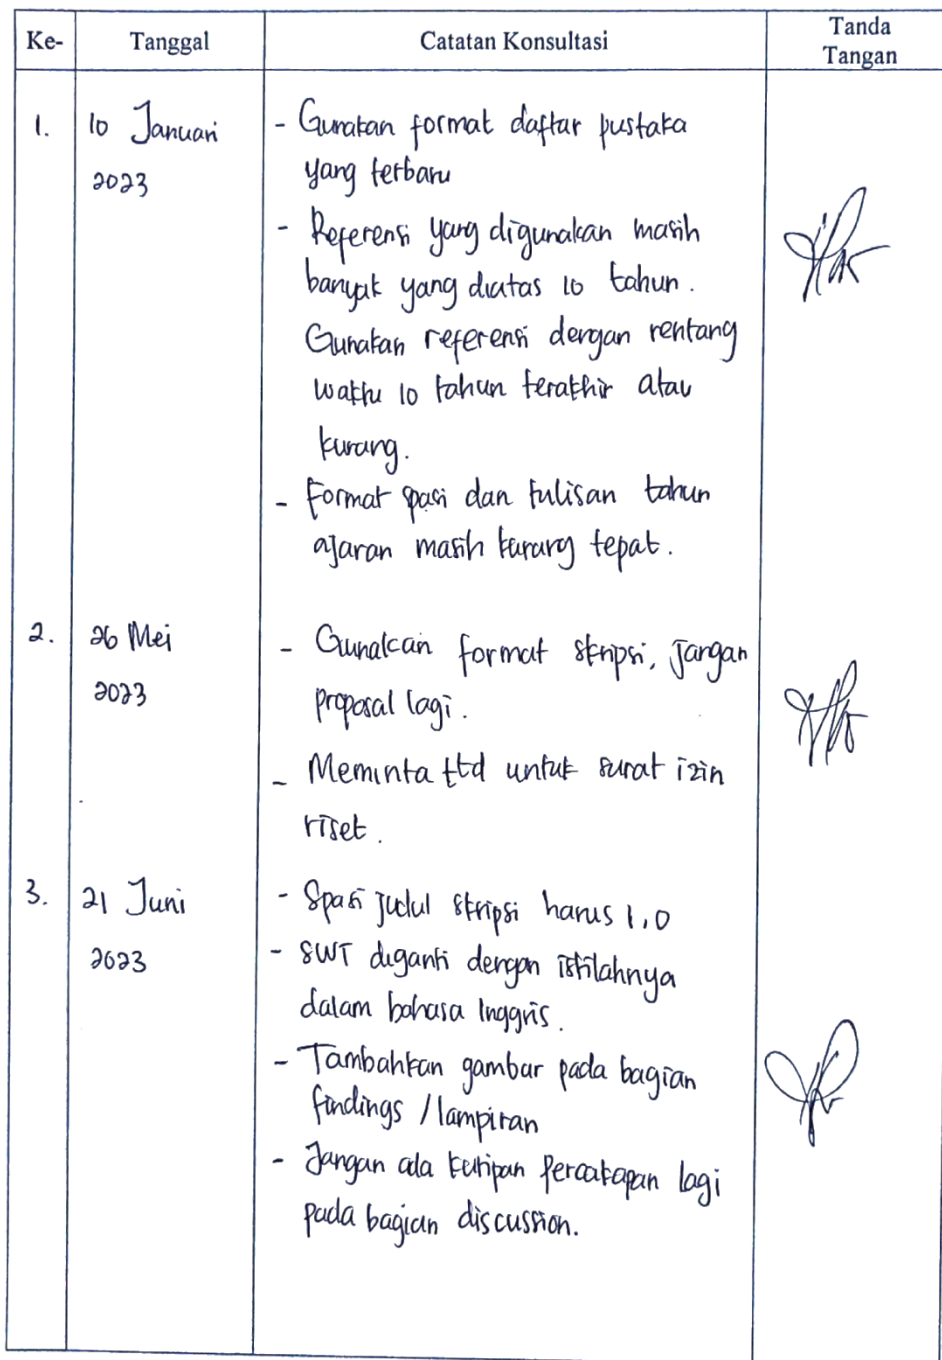 Ke- Tanggal Catatan Konsultasi Tanda Tangan
1. 10 Januari - Gunakan format daftar pustaka
2023 yang terbaru
- Referensi yang digunakan masih
banyak yang diatas 10 tahun.
Gunakan referensi dengan rentang
waktu 10 tahun terakhir atau
kurang.
- Format spasi dan tulisan tahun
ajaran masih kurang tepat.
2. 26 Mei - Gunakan format skripsi, jangan
2023 proposal lagi.
- Meminta ttd untuk surat izin
riset.
3. 21 Juni - Spasi judul skripsi harus 1,0
2023 - SWT diganti dengan istilahnya
dalam bahasa Inggris.
- Tambahkan gambar pada bagian
findings / lampiran
- Jangan ada kutipan percakapan lagi
pada bagian discussion.